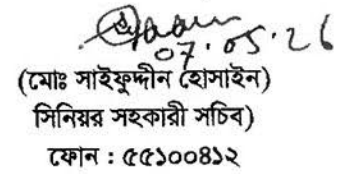 07.05.26
(মোঃ সাইফুদ্দীন হোসাইন)
সিনিয়র সহকারী সচিব)
ফোন : ৫৫১০০৪১২